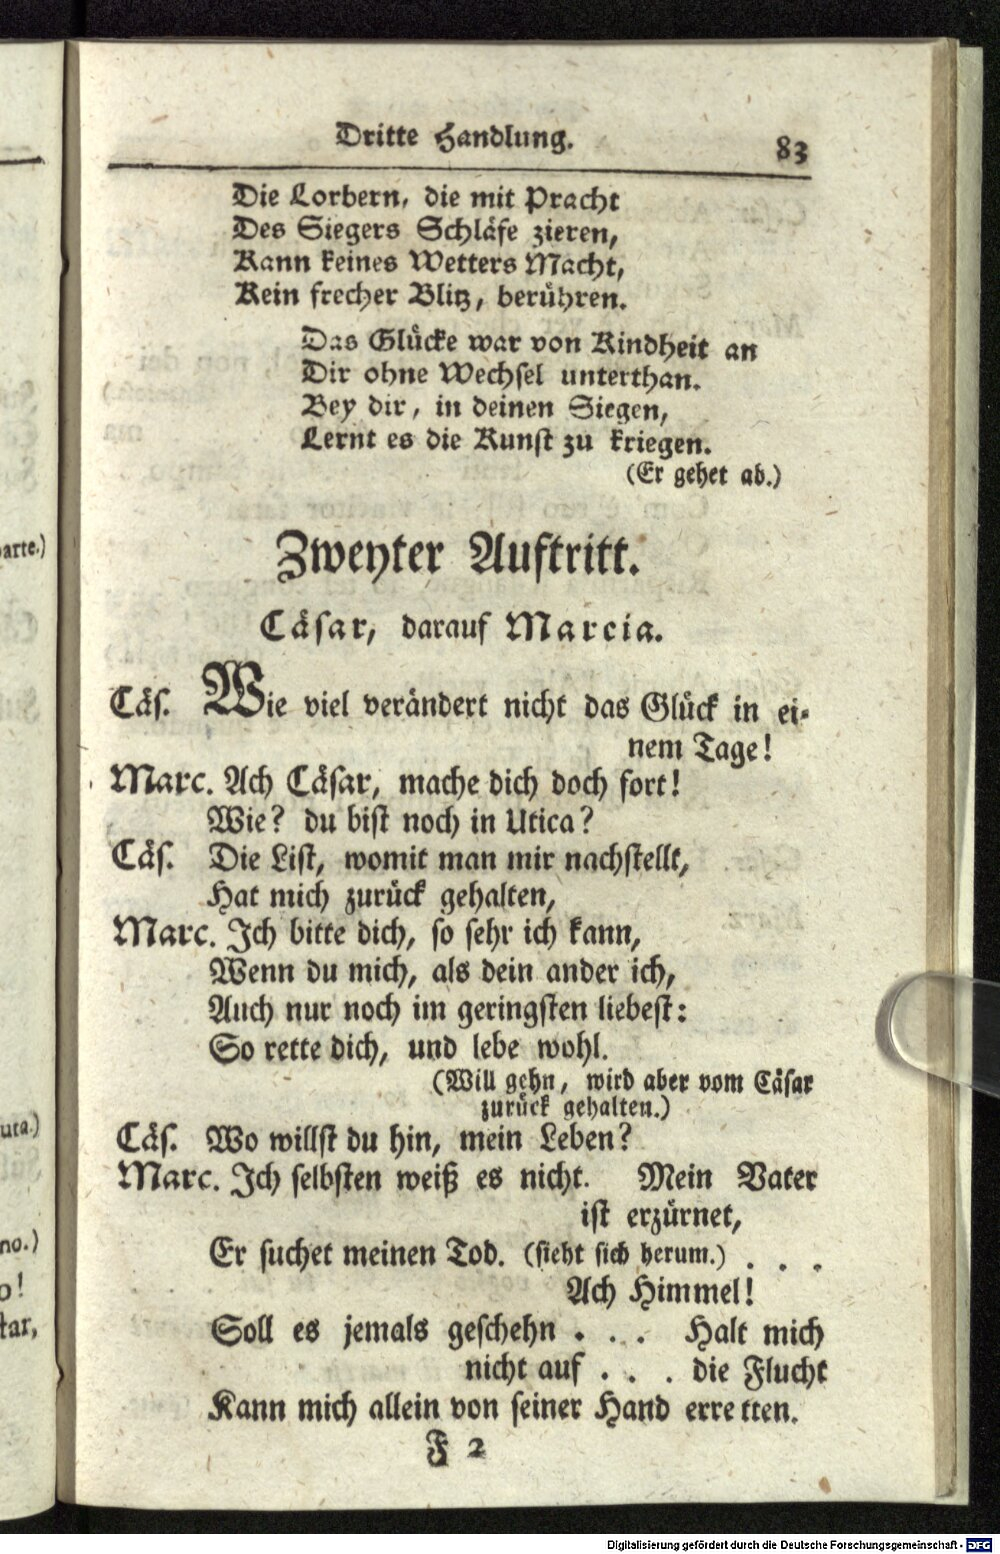 Dritte Handlung. 83
Die Lorbern, die mit Pracht
Des Siegers Schläfe zieren,
Kann keines Wetters Macht,
Kein frecher Blitz, berühren.
Das Glücke war von Kindheit an
Dir ohne Wechsel unterthan.
Bey dir, in deinen Siegen,
Lernt es die Kunst zu kriegen.
(Er gehet ab.)
Zweyter Auftritt.
Cäsar, darauf Marcia.
Cäs. Wie viel verändert nicht das Glück in ei-
nem Tage!
Marc. Ach Cäsar, mache dich doch fort!
Wie? du bist noch in Utica?
Cäs. Die List, womit man mir nachstellt,
Hat mich zurück gehalten,
Marc. Ich bitte dich, so sehr ich kann,
Wenn du mich, als dein ander ich,
Auch nur noch im geringsten liebest:
So rette dich, und lebe wohl.
(Will gehn, wird aber vom Cäsar
zurück gehalten.)
Cäs. Wo willst du hin, mein Leben?
Marc. Ich selbsten weiß es nicht. Mein Vater
ist erzürnet,
Er suchet meinen Tod. (sieht sich herum.) . . .
Ach Himmel!
Soll es jemals geschehn . . . Halt mich
nicht auf . . . die Flucht
Kann mich allein von seiner Hand erretten.
F 2
arte.)
uta.)
no.)
o!
tar,
Digitalisierung gefördert durch die Deutsche Forschungsgemeinschaft - DFG